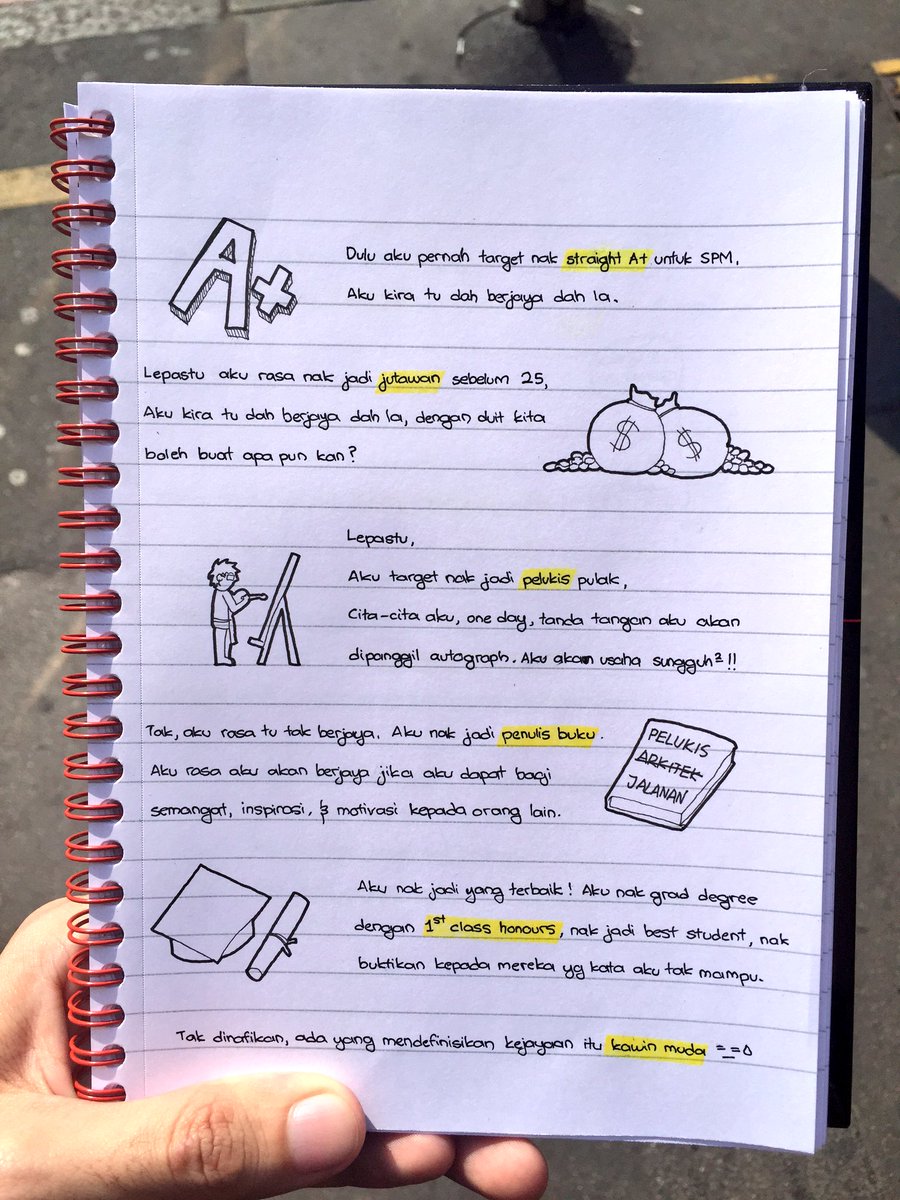 A+
Dulu aku pernah target nak straight A+ untuk SPM.
Aku kira tu dah berjaya dah la.
Lepastu aku rasa nak jadi jutawan sebelum 25,
Aku kira tu dah berjaya dah la, dengan duit kita
boleh buat apa pun kan?
$ $
Lepastu,
Aku target nak jadi pelukis pulak,
Cita-cita aku, one day, tanda tangan aku akan
dipanggil autograph. Aku akan usaha sungguh²!!
Tak, aku rasa tu tak berjaya. Aku nak jadi penulis buku.
Aku rasa aku akan berjaya jika aku dapat bagi
semangat, inspirasi, & motivasi kepada orang lain.
PELUKIS
ARKITEK
JALANAN
Aku nak jadi yang terbaik! Aku nak grad degree
dengan 1st class honours, nak jadi best student, nak
buktikan kepada mereka yg kata aku tak mampu.
Tak dinafikan, ada yang mendefinisikan kejayaan itu kawin muda =_=△